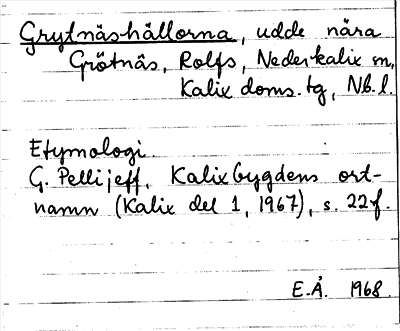 Grytnäshällorna, udde nära
Grötnäs, Rolfs, Nederkalix sn,
Kalix doms. tg, Nb. l.
Etymologi.
G. Pellijeff, Kalixbygdens ort-
namn (Kalix del 1, 1967), s. 22f.
E.Å. 1968.